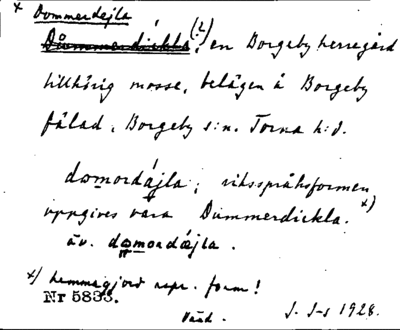 x Dommerdejla
Dummerdickla (?), en Borgeby herregård
tillhörig mosse, belägen å Borgeby
fälad, Borgeby s:n. Torna h:d.
domordájla; riksspråksformen
uppgives vara Dummerdickla. x)
äv. domordæjla.
x) hemmagjord repr. form!
Nr 5833.
J. J-s 1928.